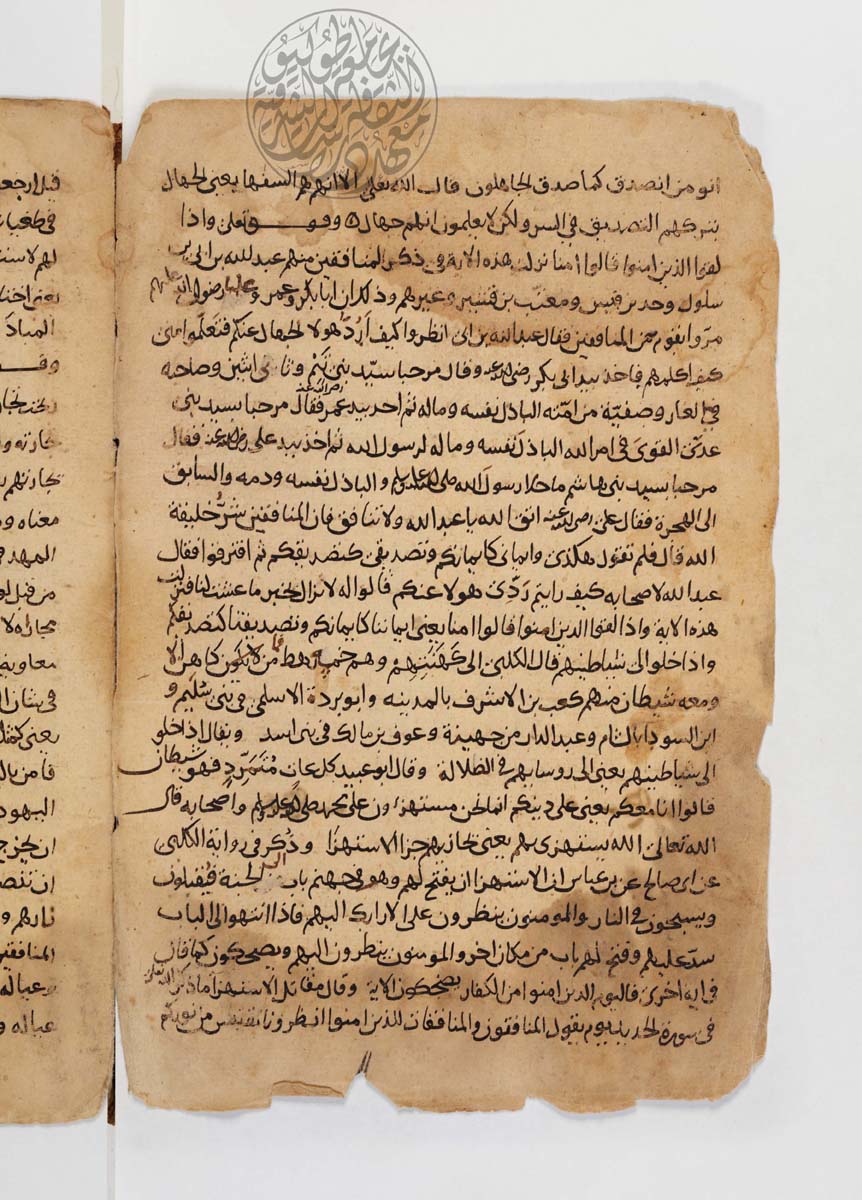 جامعة طوكيو
معهد دراسات الثقافة الشرقية
انومن انصدق كما صدق الجاهلون قال الله تعالى الا انهم هم السفها يعني الجهال
بتركهم التصديق في السر ولكن لا يعلمون انهم جهال وقوله تعالى واذا
لقوا الذين امنوا قالوا امنا نزلت هذه الاية في ذكر المنافقين منهم عبد الله بن ابي بن
سلول وجد بن قيس ومعتب بن قشير وغيرهم وذلك ان ابا بكر وعمر وعليا رضوان الله عليهم
مروا بقوم من المنافقين فقال عبد الله بن ابي انظروا كيف اردّ هولا الجهال عنكم فتعلموا مني
كيف اكلمهم فاخذ بيد ابي بكر رضي الله عنه وقال مرحبا بسيّد بني تيم وثاني اثنين وصاحبه
في الغار وصفيّه من امّته الباذل نفسه وماله ثم اخذ بيد عمر رضي الله عنه فقال مرحبا بسيد بني
عديّ القويّ في امر الله الباذل نفسه وماله لرسول الله ثم اخذ بيد علي رضي الله عنه فقال
مرحبا بسيد بني هاشم ما خلا رسول الله صلى الله عليه وسلم والباذل نفسه ودمه والسابق
الى الهجرة فقال علي رضي الله عنه اتق الله يا عبد الله ولا تنافق فان المنافقين شرّ خليقة
الله قال فلم تقول هكذى وايماني كايمانكم وتصديقي كتصديقكم ثم افترقوا فقال
عبد الله لاصحابه كيف رايتم ردّي هولا عنكم قالوا له لا نزال بخير ما عشت لنا فنزلت
هذه الاية واذا لقوا الذين امنوا قالوا امنا يعني ايماننا كايمانكم وتصديقنا كتصديقكم
واذا خلوا الى شياطينهم قال الكلبي الى كهنتهم وهم خمسة رهط من لا يكون كاهن الا
ومعه شيطان منهم كعب بن الاشرف بالمدينه وابو بردة الاسلمي في بني سُليم و
ابن السودا بالشام وعبد الدار من جهينة وعوف بن مالك في بني اسد ويقال اذا خلو
الى شياطينهم يعني الى روسايهم في الضلالة وقال ابو عبيد كل عات متمرد فهو شيطان
قالوا انا معكم يعني على دينكم انما نحن مستهزون على محمد صلى الله عليه وسلم واصحابه قال
الله تعالى الله يستهزى بهم يعني يجازيهم جزا الاستهزا وذُكر في رواية الكلبي
عن ابي صالح عن بن عباس ان الاستهزا ان يفتح لهم وهو في جهنم باب الى الجنة فيقبلون
ويسبحون في النار والمومنون ينظرون على الارايك اليهم فاذا انتهوا الى الباب
سدّ عليهم وفتح لهم باب من مكان اخر والمومنون ينظرون اليهم ويضحكون كما قال
في اية اخرى فاليوم الذين امنوا من الكفار يضحكون الاية وقال مقاتل الاستهزا ما ذكر الله تعالى
في سورة الحديد يوم يقول المنافقون والمنافقات للذين امنوا انظرونا نقتبس من نوركم